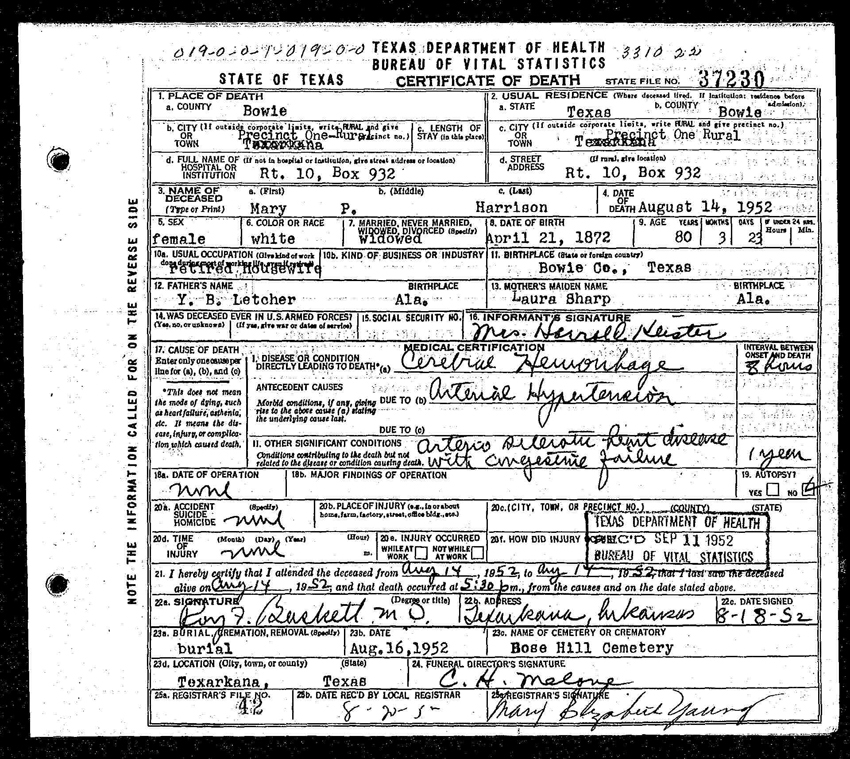 019-0-0-1-019-0-0 TEXAS DEPARTMENT OF HEALTH 3310 22
BUREAU OF VITAL STATISTICS
STATE OF TEXAS CERTIFICATE OF DEATH STATE FILE NO. 37230
1. PLACE OF DEATH
a. COUNTY Bowie
2. USUAL RESIDENCE (Where deceased lived. If institution: residence before admission).
a. STATE Texas b. COUNTY Bowie
b. CITY (If outside corporate limits, write RURAL and give precinct no.) OR TOWN Precinct One-Rural Texarkana
c. LENGTH OF STAY (in this place)
c. CITY (If outside corporate limits, write RURAL and give precinct no.) OR TOWN Precinct One Rural Texarkana
d. FULL NAME OF (If not in hospital or institution, give street address or location) HOSPITAL OR INSTITUTION Rt. 10, Box 932
d. STREET ADDRESS (If rural, give location) Rt. 10, Box 932
3. NAME OF DECEASED (Type or Print)
a. (First) Mary b. (Middle) P. c. (Last) Harrison
4. DATE OF DEATH August 14, 1952
5. SEX female
6. COLOR OR RACE white
7. MARRIED, NEVER MARRIED, WIDOWED, DIVORCED (Specify) widowed
8. DATE OF BIRTH April 21, 1872
9. AGE YEARS 80 MONTHS 3 DAYS 23 IF UNDER 24 HRS. Hours Min.
10a. USUAL OCCUPATION (Give kind of work done during most of working life, even if retired) retired Housewife
10b. KIND OF BUSINESS OR INDUSTRY
11. BIRTHPLACE (State or foreign country) Bowie Co., Texas
12. FATHER'S NAME Y. B. Letcher BIRTHPLACE Ala.
13. MOTHER'S MAIDEN NAME Laura Sharp BIRTHPLACE Ala.
14. WAS DECEASED EVER IN U.S. ARMED FORCES? (Yes, no, or unknown) (If yes, give war or dates of service)
15. SOCIAL SECURITY NO.
16. INFORMANT'S SIGNATURE Mrs. Harrold Keister
17. CAUSE OF DEATH Enter only one cause per line for (a), (b), and (c)
MEDICAL CERTIFICATION
INTERVAL BETWEEN ONSET AND DEATH
I. DISEASE OR CONDITION DIRECTLY LEADING TO DEATH* (a) Cerebral Hemorrhage 8 hours
*This does not mean the mode of dying, such as heart failure, asthenia, etc. It means the disease, injury, or complication which caused death.
ANTECEDENT CAUSES
Morbid conditions, if any, giving rise to the above cause (a) stating the underlying cause last.
DUE TO (b) Arterial Hypertension
DUE TO (c)
II. OTHER SIGNIFICANT CONDITIONS
Conditions contributing to the death but not related to the disease or condition causing death.
Arterio sclerotic heart disease with congestive failure 1 year
18a. DATE OF OPERATION none
18b. MAJOR FINDINGS OF OPERATION
19. AUTOPSY? YES NO
20a. ACCIDENT SUICIDE HOMICIDE (Specify) none
20b. PLACE OF INJURY (e.g., in or about home, farm, factory, street, office bldg., etc.)
20c. (CITY, TOWN, OR PRECINCT NO.) (COUNTY) (STATE)
20d. TIME OF INJURY (Month) (Day) (Year) (Hour) m. none
20e. INJURY OCCURRED WHILE AT WORK NOT WHILE AT WORK
20f. HOW DID INJURY
TEXAS DEPARTMENT OF HEALTH
REC'D SEP 11 1952
BUREAU OF VITAL STATISTICS
21. I hereby certify that I attended the deceased from Aug 14, 1952, to Aug 14, 1952, that I last saw the deceased
alive on Aug 14, 1952, and that death occurred at 5:30 p m., from the causes and on the date stated above.
22a. SIGNATURE (Degree or title) Roy F. Baskett M D
22b. ADDRESS Texarkana, Arkansas
22c. DATE SIGNED 8-18-52
23a. BURIAL, CREMATION, REMOVAL (Specify) burial
23b. DATE Aug.16,1952
23c. NAME OF CEMETERY OR CREMATORY Bose Hill Cemetery
23d. LOCATION (City, town, or county) (State) Texarkana, Texas
24. FUNERAL DIRECTOR'S SIGNATURE C. H. Malone
25a. REGISTRAR'S FILE NO. 42
25b. DATE REC'D BY LOCAL REGISTRAR 8-20-5
25c. REGISTRAR'S SIGNATURE Mary Elizabeth Young
NOTE THE INFORMATION CALLED FOR ON THE REVERSE SIDE